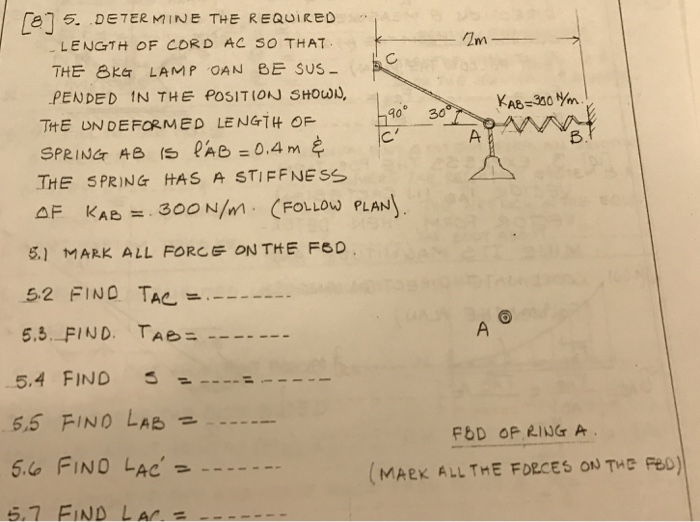 [8] 5. DETERMINE THE REQUIRED
LENGTH OF CORD AC SO THAT
THE 8KG LAMP OAN BE SUS-
PENDED IN THE POSITION SHOWN,
THE UNDEFORMED LENGTH OF
SPRING AB IS l'AB = 0.4 m &
THE SPRING HAS A STIFFNESS
OF KAB = 300 N/m. (FOLLOW PLAN).
2m
C
KAB=300 N/m.
90° 30°
C' A B.
5.1 MARK ALL FORCE ON THE FBD.
5.2 FIND TAC = --------
5.3. FIND. TAB = -------
5.4 FIND S = ----=------
5.5 FIND LAB = -------
5.6 FIND LAC' = -------
5.7 FIND LAC = -------
A
FBD OF RING A.
(MARK ALL THE FORCES ON THE FBD)